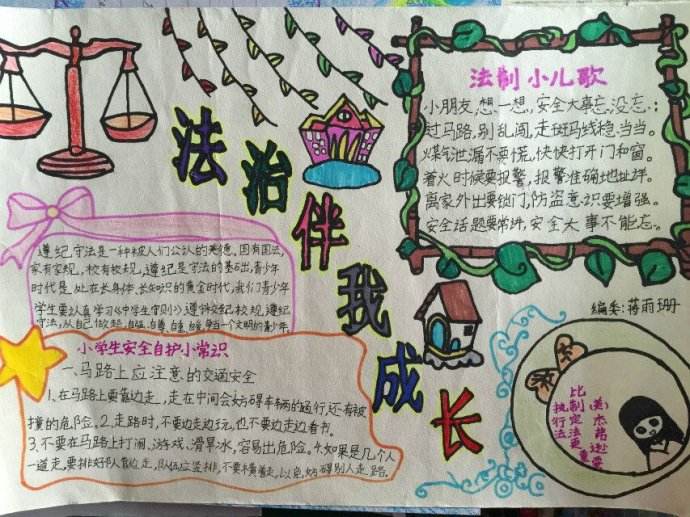 法治伴我成长
法制小儿歌
小朋友,想一想,安全大事忘,没忘:
过马路,别乱闯,走斑马线稳当当。
煤气泄漏不要慌,快快打开门和窗。
着火时候要报警,报警准确地址详。
离家外出要锁门,防盗意识要增强。
安全话题要常讲,安全大事不能忘。
编委:蒋雨珊
遵纪守法是一种被人们公认的美德。国有国法,
家有家规,校有校规,遵纪是守法的基础,青少年
时代是处在长身体、长知识的黄金时代,我们青少年
学生要认真学习《中学生守则》遵守校纪校规,遵纪
守法,从自己做起,自尊 争当一个文明的青少年
小学生安全自护小常识
一、马路上应注意的交通安全
1.在马路上要靠边走,走在中间会妨碍车辆的通行,还有被
撞的危险。2.走路时,不要边走边玩,也不要边走边看书。
3.不要在马路上打闹、游戏、滑旱冰,容易出危险。4.如果是几个人
一道走,要排好队靠边走,队伍应竖排,不要横着走,以免妨碍别人走路。
执行法
比制定法更重要
(美)杰弗逊